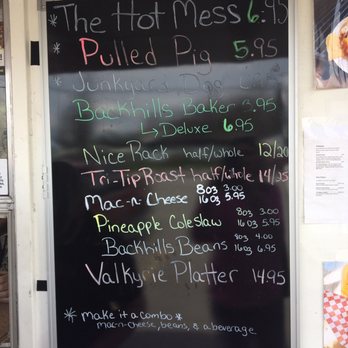 The Hot Mess 6.95
* Pulled Pig 5.95
* Junkyard Dog
Backhills Baker 3.95
↳ Deluxe 6.95
Nice Rack half/whole 12/20
Tri-Tip Roast half/whole 14/25
Mac-n-Cheese 8oz 3.00
16oz 5.95
Pineapple Coleslaw 8oz 3.00
16oz 5.95
Backhills Beans 8oz 4.00
16oz 6.95
Valkyrie Platter 14.95
* make it a combo *
mac-n-cheese, beans, & a beverage